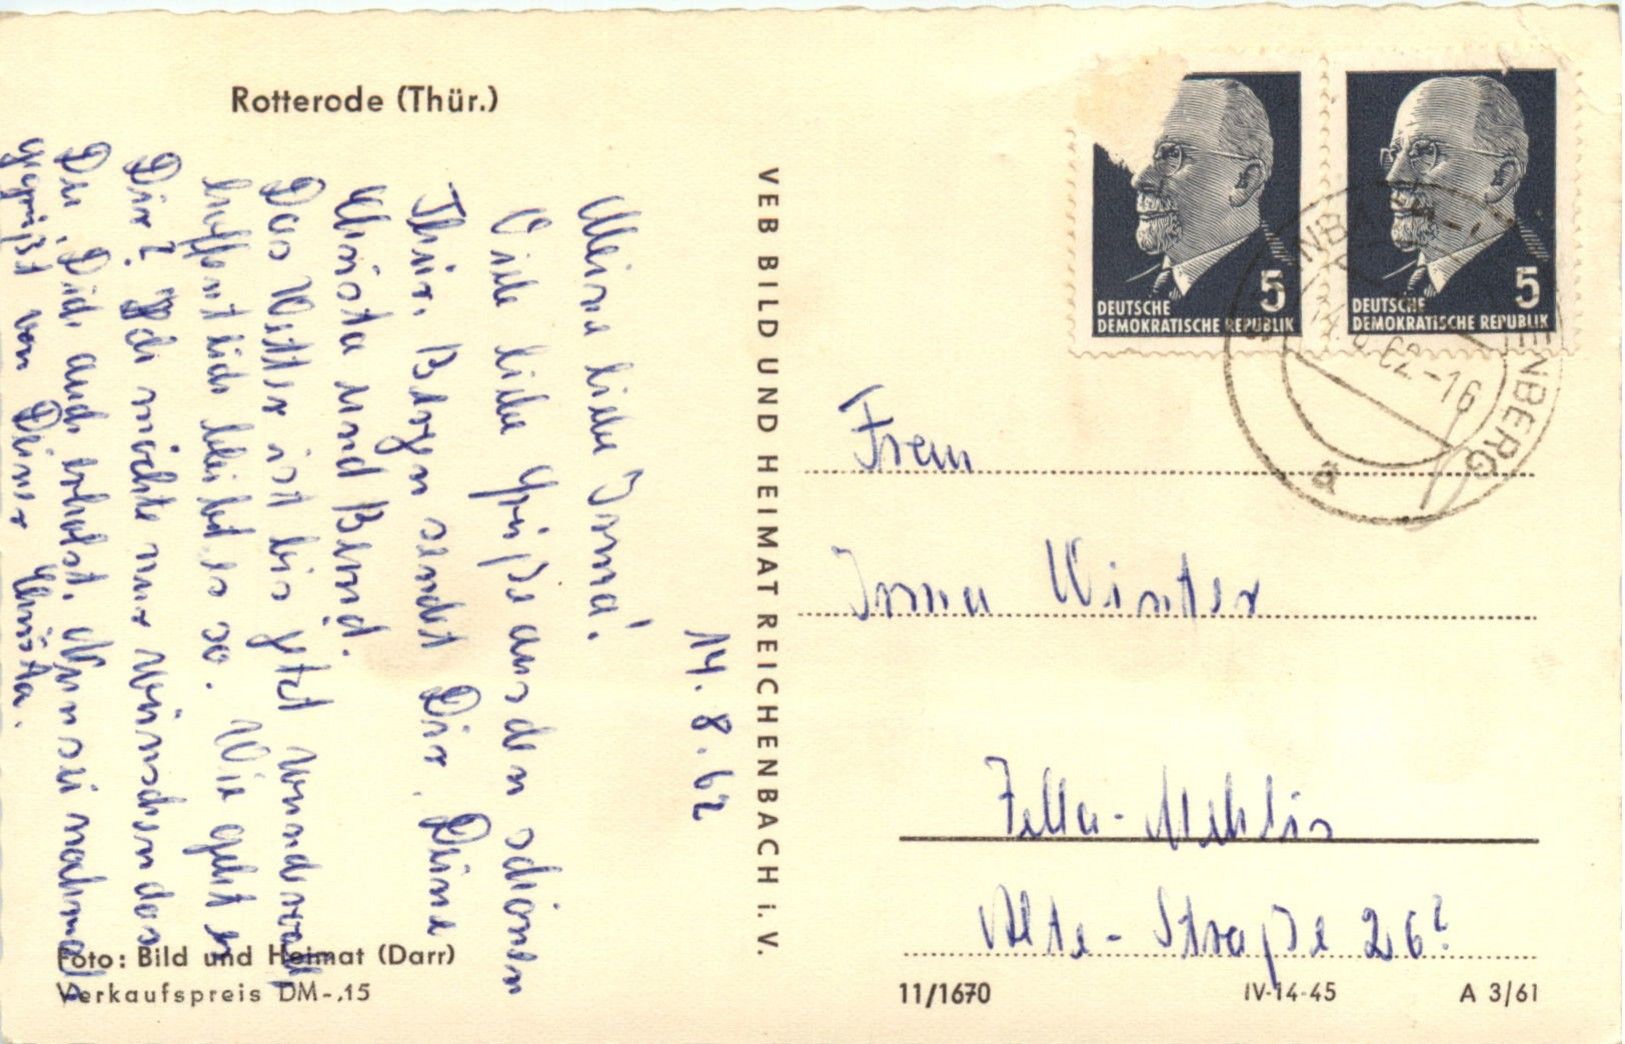 Rotterode (Thür.)
14. 8. 62
Meine liebe Irma!
Viele liebe Grüße aus den schönen
Thür. Bergen sendet Dir. Deine
Christa und Bernd.
Das Wetter ist bis jetzt
hoffentlich bleibt es so. Wie geht es
Dir? Ich möchte nur wünschen das
Du Dich auch erholst. Nun sei nochmals
gegrüßt von Deiner Christa.
Foto: Bild und Heimat (Darr)
Verkaufspreis DM -,15
VEB BILD UND HEIMAT REICHENBACH i. V.
5
DEUTSCHE
DEMOKRATISCHE REPUBLIK
5
DEUTSCHE
DEMOKRATISCHE REPUBLIK
62.-16
a
Frau
Irma Winter
Zella-Mehlis
Alte-Straße 26?
11/1670
IV-14-45
A 3/61